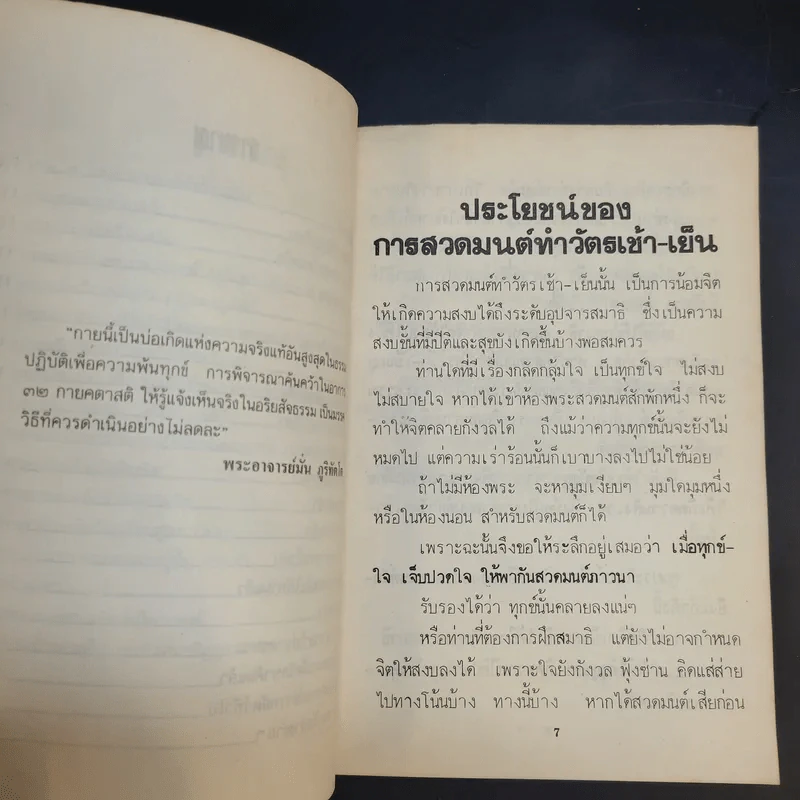 "กายนี้เป็นบ่อเกิดแห่งความจริงแท้อันสูงสุดในธรรม
ปฏิบัติเพื่อความพ้นทุกข์ การพิจารณาค้นคว้าในอาการ
๓๒ กายคตาสติ ให้รู้แจ้งเห็นจริงในอริยสัจธรรม เป็นมรรค
วิธีที่ควรดำเนินอย่างไม่ลดละ"
พระอาจารย์มั่น ภูริทัตโต
ประโยชน์ของ
การสวดมนต์ทำวัตรเช้า-เย็น
การสวดมนต์ทำวัตรเช้า-เย็นนั้น เป็นการน้อมจิต
ให้เกิดความสงบได้ถึงระดับอุปจารสมาธิ ซึ่งเป็นความ
สงบขั้นที่มีปีติและสุขบังเกิดขึ้นบ้างพอสมควร
ท่านใดที่มีเรื่องกลัดกลุ้มใจ เป็นทุกข์ใจ ไม่สงบ
ไม่สบายใจ หากได้เข้าห้องพระสวดมนต์สักพักหนึ่ง ก็จะ
ทำให้จิตคลายกังวลได้ ถึงแม้ว่าความทุกข์นั้นจะยังไม่
หมดไป แต่ความเร่าร้อนนั้นก็เบาบางลงไปไม่ใช่น้อย
ถ้าไม่มีห้องพระ จะหามุมเงียบๆ มุมใดมุมหนึ่ง
หรือในห้องนอน สำหรับสวดมนต์ก็ได้
เพราะฉะนั้นจึงขอให้ระลึกอยู่เสมอว่า เมื่อทุกข์-
ใจ เจ็บปวดใจ ให้พากันสวดมนต์ภาวนา
รับรองได้ว่า ทุกข์นั้นคลายลงแน่ๆ
หรือท่านที่ต้องการฝึกสมาธิ แต่ยังไม่อาจกำหนด
จิตให้สงบลงได้ เพราะใจยังกังวล ฟุ้งซ่าน คิดแส่ส่าย
ไปทางโน้นบ้าง ทางนี้บ้าง หากได้สวดมนต์เสียก่อน
7